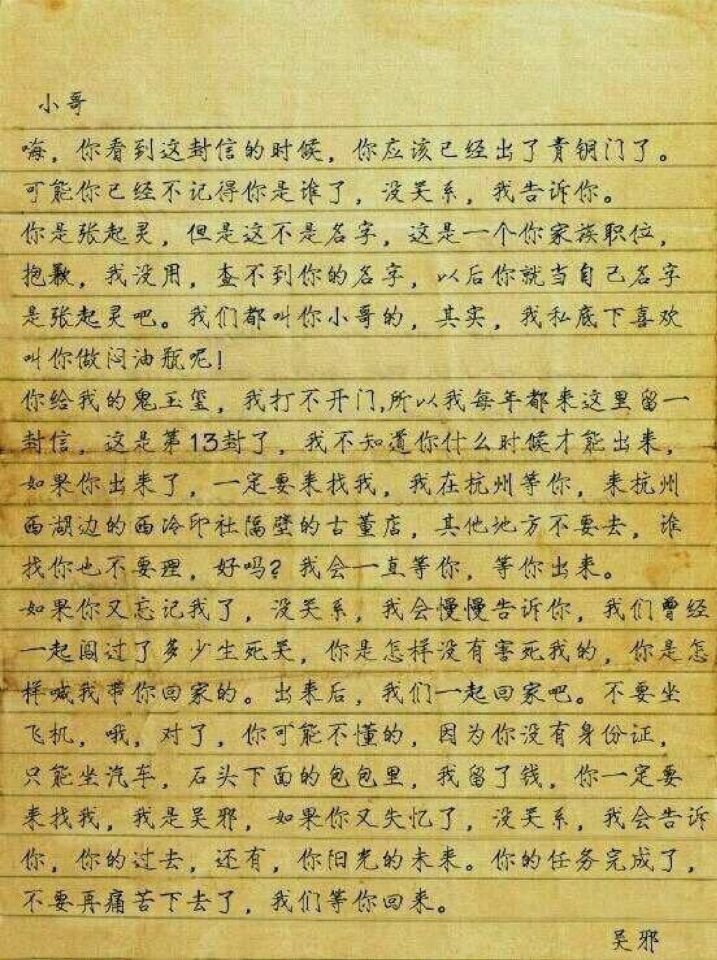 小哥
嗨，你看到这封信的时候，你应该已经出了青铜门了。
可能你已经不记得你是谁了，没关系，我告诉你。
你是张起灵，但是这不是名字，这是一个你家族职位，
抱歉，我没用，查不到你的名字，以后你就当自己名字
是张起灵吧。我们都叫你小哥的，其实，我私底下喜欢
叫你做闷油瓶呢！
你给我的鬼玉玺，我打不开门,所以我每年都来这里留一
封信，这是第13封了，我不知道你什么时候才能出来，
如果你出来了，一定要来找我，我在杭州等你，来杭州
西湖边的西冷印社隔壁的古董店，其他地方不要去，谁
找你也不要理，好吗？我会一直等你，等你出来。
如果你又忘记我了，没关系，我会慢慢告诉你，我们曾经
一起闯过了多少生死关，你是怎样没有害死我的，你是怎
样喊我带你回家的。出来后，我们一起回家吧。不要坐
飞机，哦，对了，你可能不懂的，因为你没有身份证，
只能坐汽车，石头下面的包包里，我留了钱，你一定要
来找我，我是吴邪，如果你又失忆了，没关系，我会告诉
你，你的过去，还有，你阳光的未来。你的任务完成了，
不要再痛苦下去了，我们等你回来。
吴邪